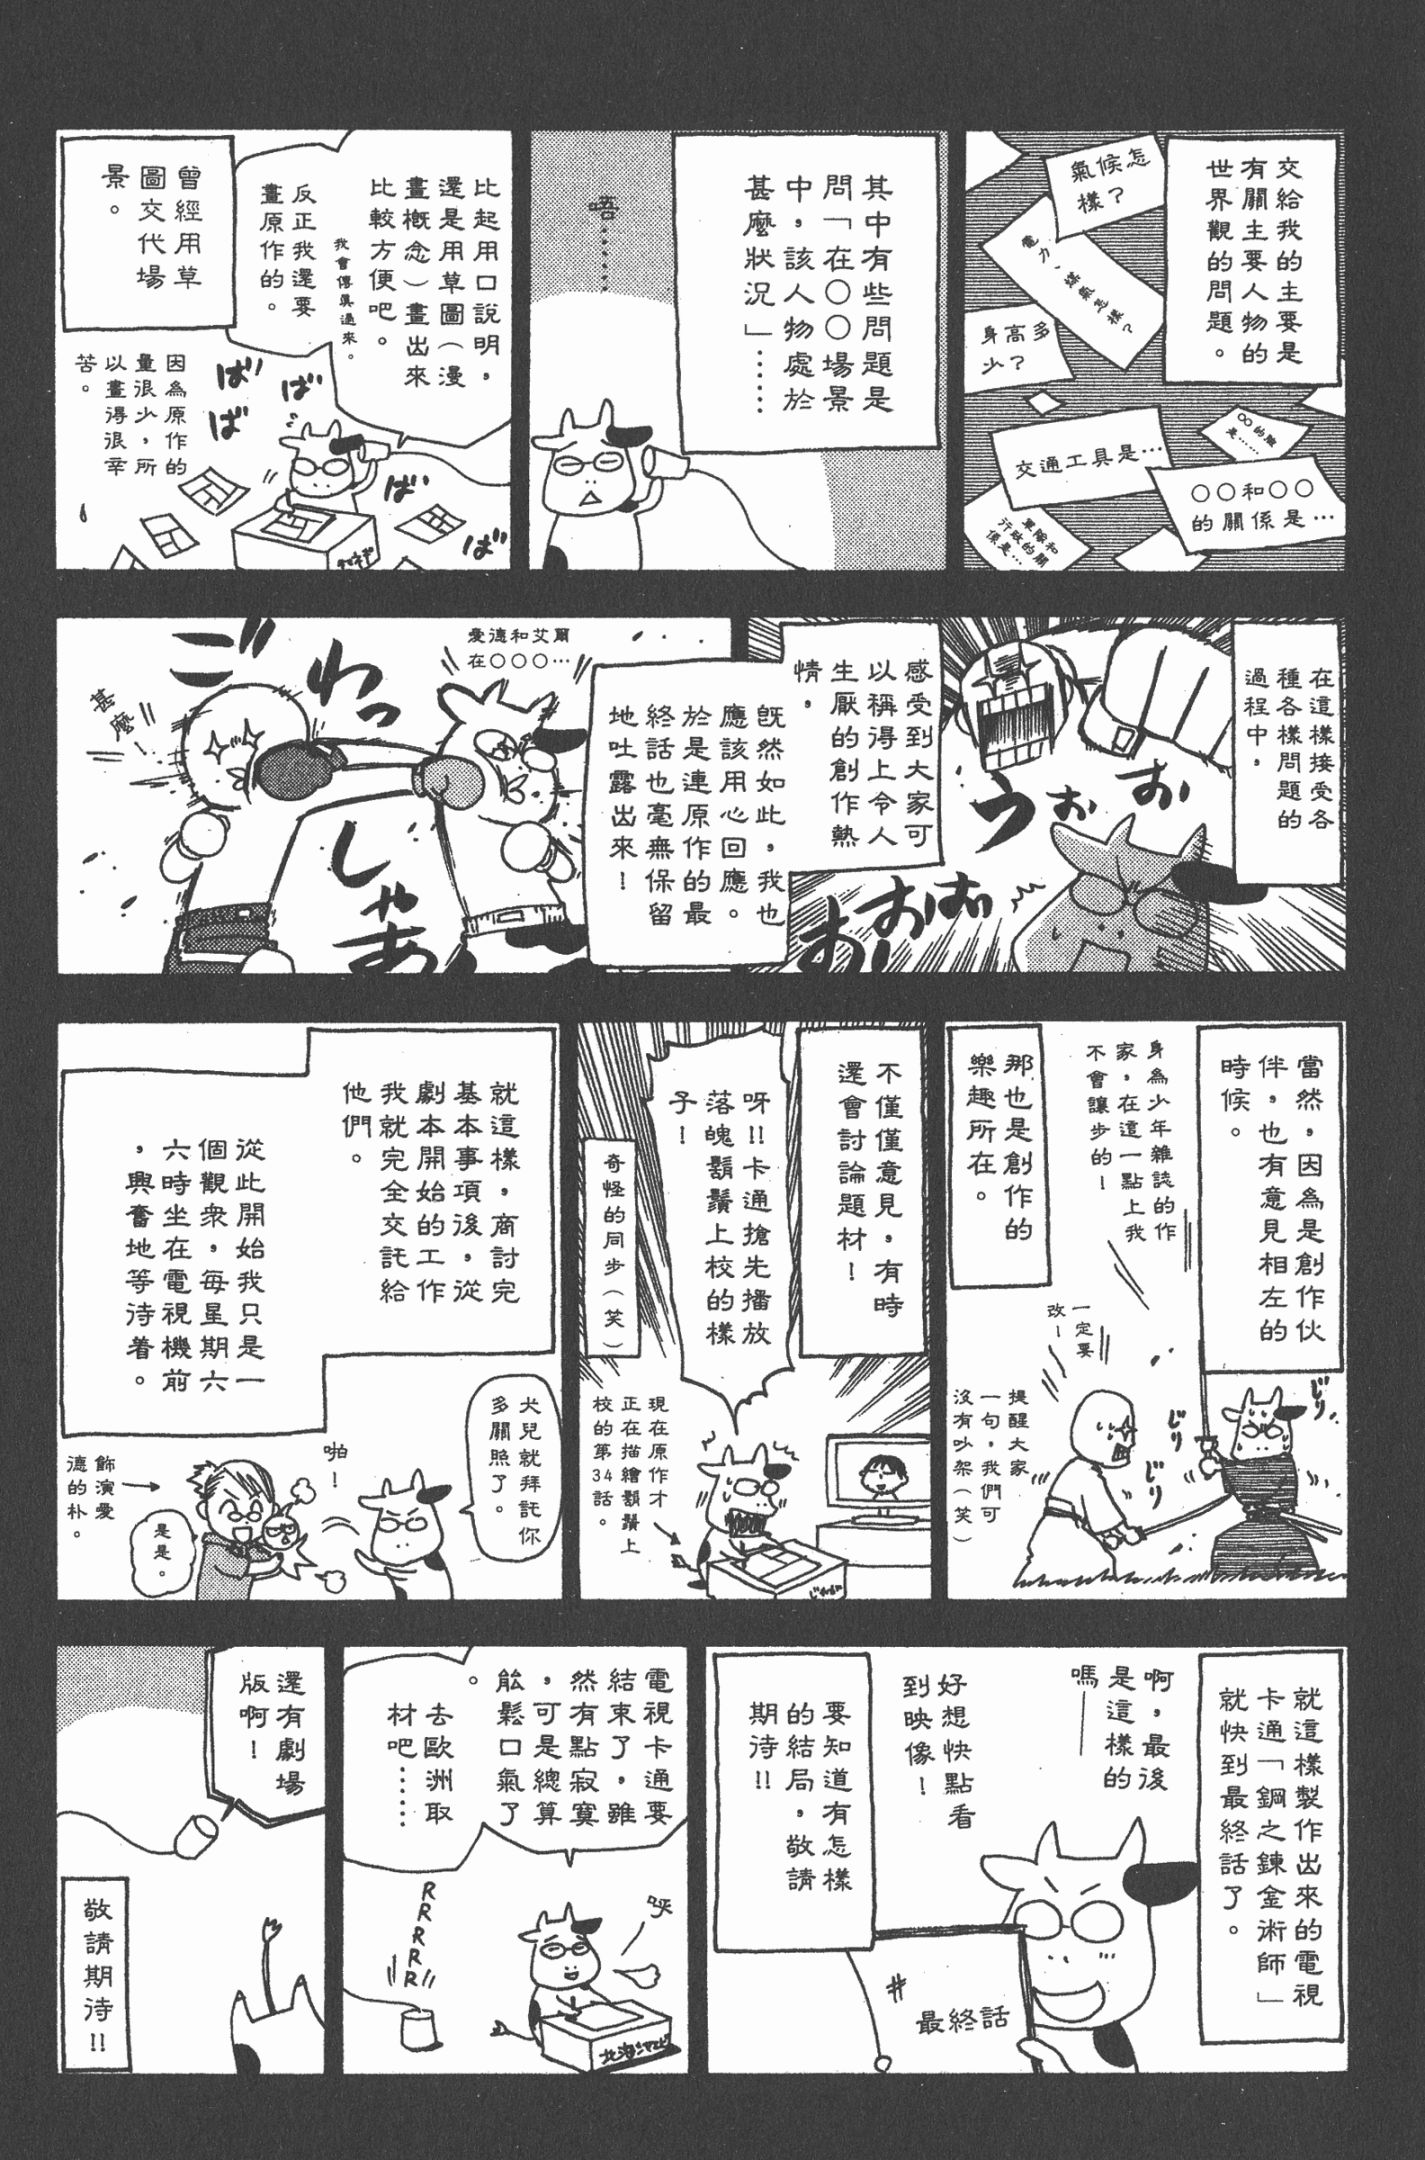 交給我的主要是
有關主要人物的
世界觀的問題。
氣候怎
樣？
電力、煤氣怎樣？
身高多
少？
交通工具是…
○○和○○
的關係是…
軍隊和
行政的關
係是…
其中有些問題是
問「在○○場景
中，該人物處於
甚麼狀況」……
唔……
比起用口說明，
還是用草圖（漫
畫概念）畫出來
比較方便吧。
我會傳真過來。
反正我還要
畫原作的。
曾經用草
圖交代場
景。
因為原作的
量很少，所
以畫得很辛
苦。
ばば
ばば
ばば
在這樣接受各
種各樣問題的
過程中，
感受到大家可
以稱得上令人
生厭的創作熱
情，
うぉぉお
おおおばぁ
既然如此，我也
應該用心回應。
於是連原作的最
終話也毫無保留
地吐露出來！
愛德和艾爾
在○○○…
甚麼！
わっ
しゃあ
當然，因為是創作伙
伴，也有意見相左的
時候。
那也是創作的
樂趣所在。
身為少年雜誌的作
家，在這一點上我
不會讓步的！
一定要
改！
提醒大家
一句，我們可
沒有吵架（笑）
じり
じり
じり
不僅僅意見，有時
還會討論題材！
呀!!卡通搶先播放
落魄鬍鬚上校的樣
子！
奇怪的同步（笑）
現在原作才
正在描繪鬍鬚上
校的第34話。
就這樣，商討完
基本事項後，從
劇本開始的工作
我就完全交託給
他們。
從此開始我只是一
個觀衆，每星期六
六時坐在電視機前
，興奮地等待着。
犬兒就拜託你
多關照了。
啪！
飾演愛
德的朴。
是是。
就這樣製作出來的電視
卡通「鋼之鍊金術師」
就快到最終話了。
啊，最後
是這樣的
嗎——
好想快點看
到映像！
要知道有怎樣
的結局，敬請
期待!!
#
最終話
電視卡通要
結束了，雖
然有點寂寞
，可是總算
能鬆口氣了
。
去歐洲取
材吧……
呼
RRRRR
還有劇場
版啊！
敬請期待!!